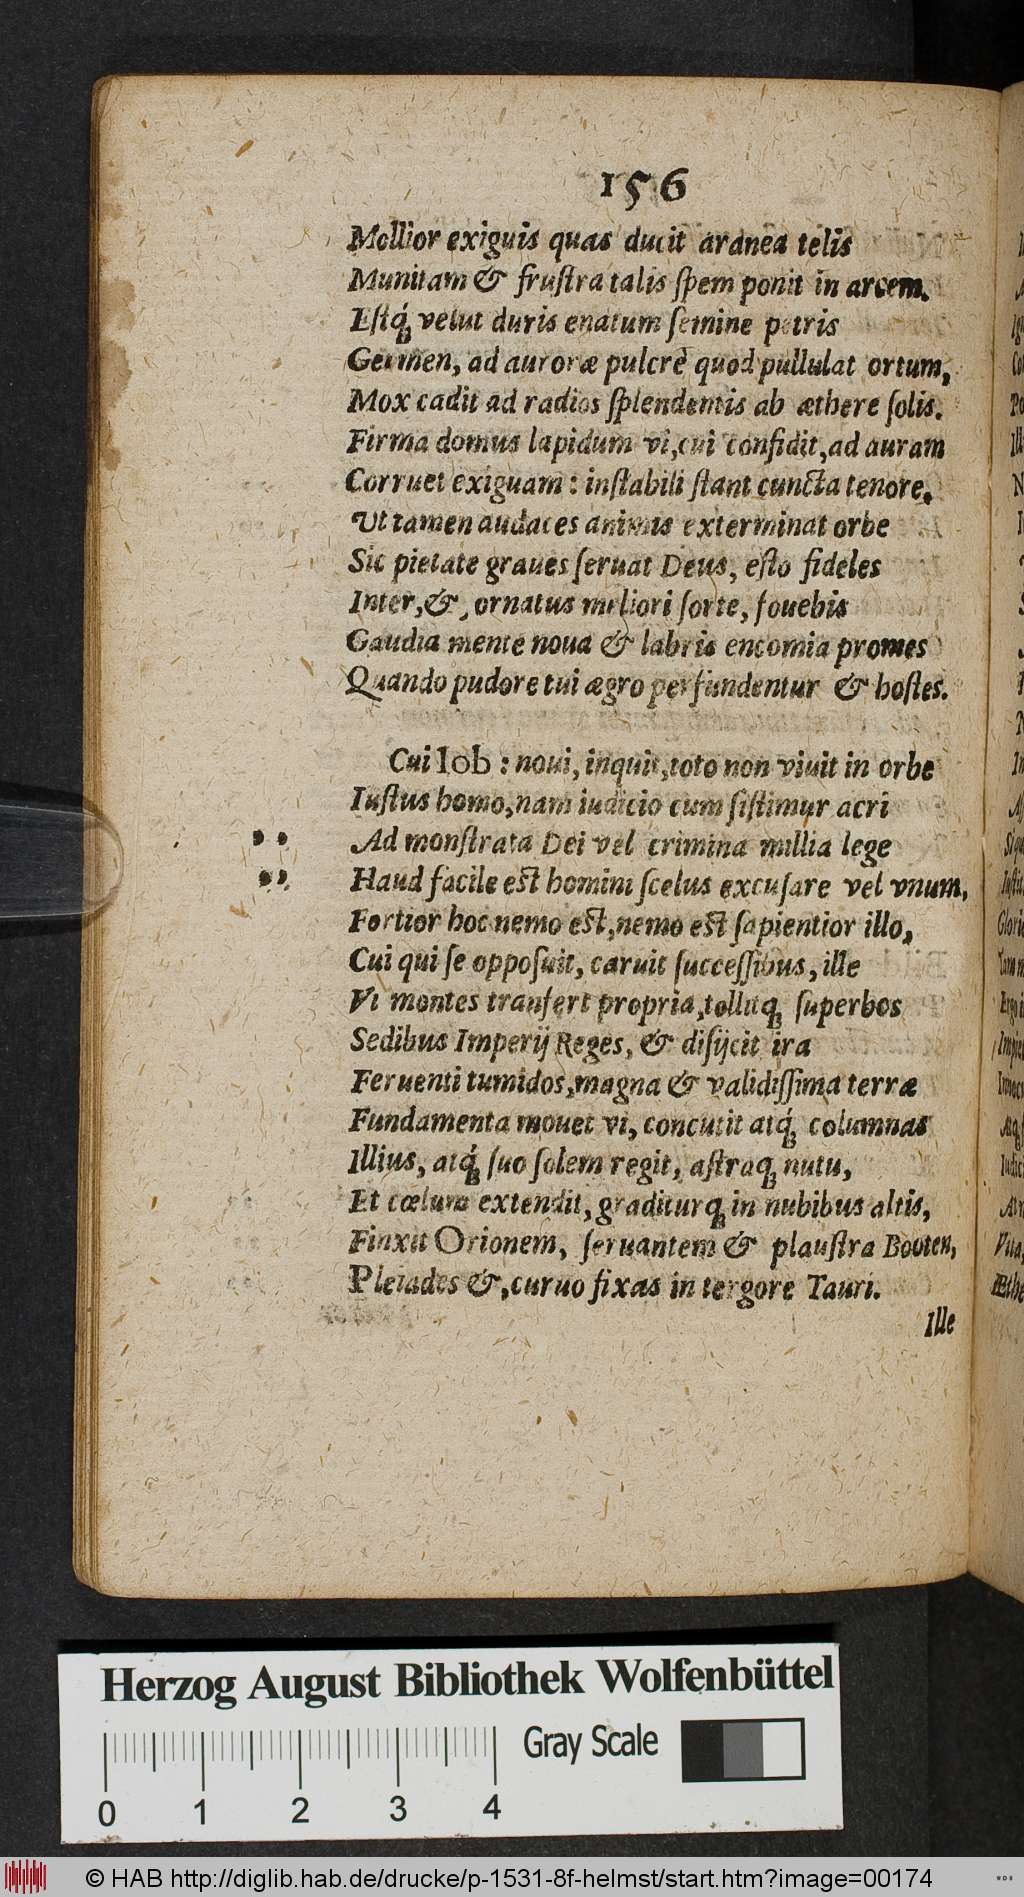 156
Mollior exiguis quas ducit aranea telis
Munitam & fruſtra talis ſpem ponit in arcem.
Eſtq́ꝫ velut duris enatum ſemine petris
Germen, ad auroræ pulcrè quod pullulat ortum,
Mox cadit ad radios ſplendentis ab æthere ſolis.
Firma domus lapidum vi, cui confidit, ad auram
Corruet exiguam: inſtabili ſtant cuncta tenore.
Ut tamen audaces animis exterminat orbe
Sic pietate graues ſeruat Deus, eſto fideles
Inter, &, ornatus meliori ſorte, fouebis
Gaudia mente noua & labris encomia promes
Quando pudore tui ægro perfundentur & hoſtes.
Cui Iob: noui, inquit, toto non viuit in orbe
Iuſtus homo, nam iudicio cum ſiſtimur acri
Ad monſtrata Dei vel crimina millia lege
Haud facile eſt homini ſcelus excuſare vel vnum,
Fortior hoc nemo eſt, nemo eſt ſapientior illo,
Cui qui ſe oppoſuit, caruit ſucceſſibus, ille
Vi montes tranſert propria, tollitqꝫ ſuperbos
Sedibus Imperij Reges, & diſijcit ira
Feruenti tumidos, magna & validiſſima terræ
Fundamenta mouet vi, concutit atq́ꝫ columnas
Illius, atq́ꝫ ſuo ſolem regit, aſtraqꝫ nutu,
Et cœlum extendit, graditurqꝫ in nubibus altis,
Finxit Orionem, ſeruantem & plauſtra Booten,
Pleiades &, curuo fixas in tergore Tauri.
Ille
Herzog August Bibliothek Wolfenbüttel
Gray Scale
0 1 2 3 4
© HAB http://diglib.hab.de/drucke/p-1531-8f-helmst/start.htm?image=00174